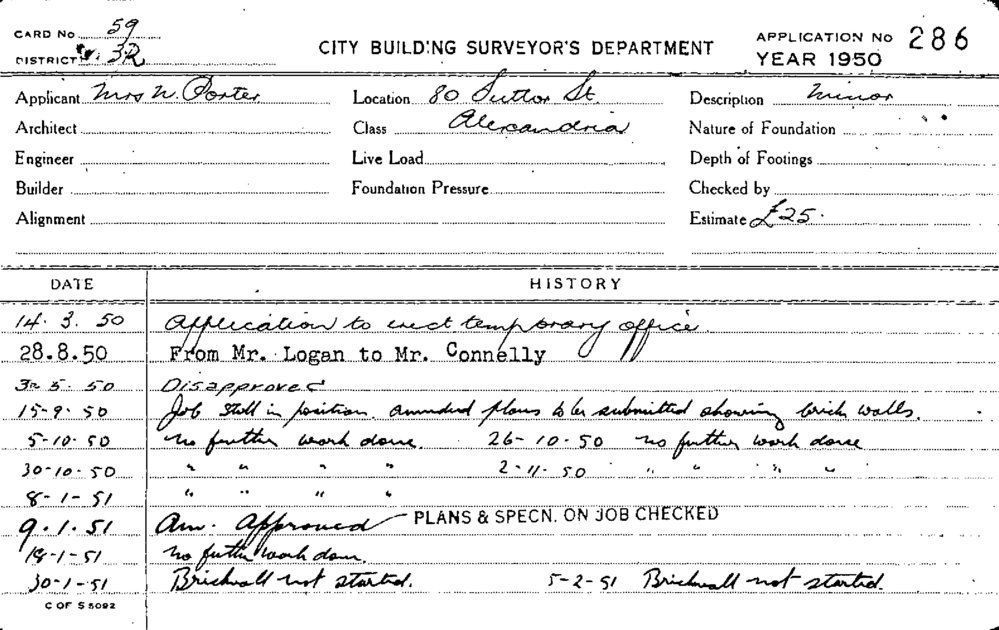 CARD No 59
CITY BUILDING SURVEYOR'S DEPARTMENT
APPLICATION No 286
DISTRICT 32
YEAR 1950
Applicant Mrs W. Porter Location 80 Suttor St. Description Minor
Architect Class Alexandria Nature of Foundation
Engineer Live Load Depth of Footings
Builder Foundation Pressure Checked by
Alignment Estimate £25.
DATE HISTORY
14. 3. 50 Application to erect temporary office
28.8.50 From Mr. Logan to Mr. Connelly
5. 50 Disapproved
15-9-50 Job still in position. amended plans to be submitted showing brick walls.
5-10-50 No further work done. 26-10-50 no further work done
30-10-50 " " " " 2-11-50 " " " "
8-1-51 " " " "
9.1.51 Am. Approved PLANS & SPECN. ON JOB CHECKED
-1-51 No further work done.
30-1-51 Brickwall not started. 5-2-51 Brickwall not started.
C OF S 5092